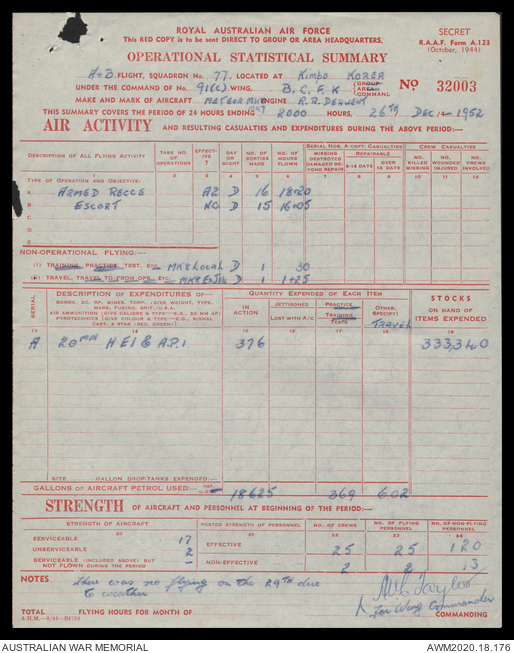 ROYAL AUSTRALIAN AIR FORCE
This RED COPY is to be sent DIRECT to GROUP or AREA HEADQUARTERS.
SECRET
R.A.A.F. Form A.123
(October, 1944)
OPERATIONAL STATISTICAL SUMMARY
A+B FLIGHT, SQUADRON No. 77. LOCATED AT Kimpo KOREA
UNDER THE COMMAND OF No. 91(C) WING, B.C.F.K GROUP AREA COMMAND.
No 32003
MAKE AND MARK OF AIRCRAFT METEOR MK8 ENGINE R.R. DERWENT
THIS SUMMARY COVERS THE PERIOD OF 24 HOURS ENDING AT 2000 HOURS, 26TH DEC 1952
AIR ACTIVITY AND RESULTING CASUALTIES AND EXPENDITURES DURING THE ABOVE PERIOD:—
DESCRIPTION OF ALL FLYING ACTIVITY
TASK NO. OF OPERATIONS
EFFECTIVE ?
DAY OR NIGHT
NO. OF SORTIES MADE
NO. OF HOURS FLOWN
SERIAL NOS. A'CFT. CASUALTIES
MISSING DESTROYED DAMAGED BEYOND REPAIR
REPAIRABLE
OVER 14 DAYS
CREW CASUALTIES
NO. KILLED MISSING
NO. WOUNDED INJURED
NO. CREWS INVOLVED
1 2 3 4 5 6 7 8 9 10 11 12
TYPE OF OPERATION AND OBJECTIVE:
A ARMED RECCE D 16 18+20
B ESCORT D 15 16+05
C
D
E
NON-OPERATIONAL FLYING:—
(1) TRAINING, PRACTICE, TEST, ETC. MK8 LOCAL D 1 30
(2) TRAVEL, TRAVEL TO FROM OPS., ETC. D 1 1+25
SERIAL
DESCRIPTION OF EXPENDITURES OF—
BOMBS, DC, RP, MINES, TORP. (GIVE WEIGHT, TYPE, MARK, FUSING, BRIT./U.S.A.
AIR AMMUNITION (GIVE CALIBRE & TYPE—E.G., 20 MM AP)
PYROTECHNICS (GIVE COLOUR & TYPE—E.G., SIGNAL CART. 2 STAR (RED, GREEN))
QUANTITY EXPENDED OF EACH ITEM
IN ACTION
JETTISONED
LOST WITH A/C
PRACTICE
TRAINING
TESTS
OTHER: SPECIFY:
TRAVEL
STOCKS
ON HAND OF
ITEMS EXPENDED
13 14 15 16 17 18 19
A 20MM HEI & API 376 333,340
SIZE GALLON DROP-TANKS EXPENDED—
GALLONS OF AIRCRAFT PETROL USED:— IMP. U.S. 18625 369 602
STRENGTH OF AIRCRAFT AND PERSONNEL AT BEGINNING OF THE PERIOD:—
STRENGTH OF AIRCRAFT
20
SERVICEABLE 17
UNSERVICEABLE 2
SERVICEABLE (INCLUDED ABOVE) BUT NOT FLOWN DURING THE PERIOD —
POSTED STRENGTH OF PERSONNEL
NO. OF CREWS
NO. OF FLYING PERSONNEL
NO. OF NON-FLYING PERSONNEL
EFFECTIVE 25 25 120
NON-EFFECTIVE 2 2 13
NOTES There was no flying on the 29TH due
to weather
Taylor
For Wing Commander
COMMANDING
TOTAL FLYING HOURS FOR MONTH OF
AUSTRALIAN WAR MEMORIAL
AWM2020.18.176